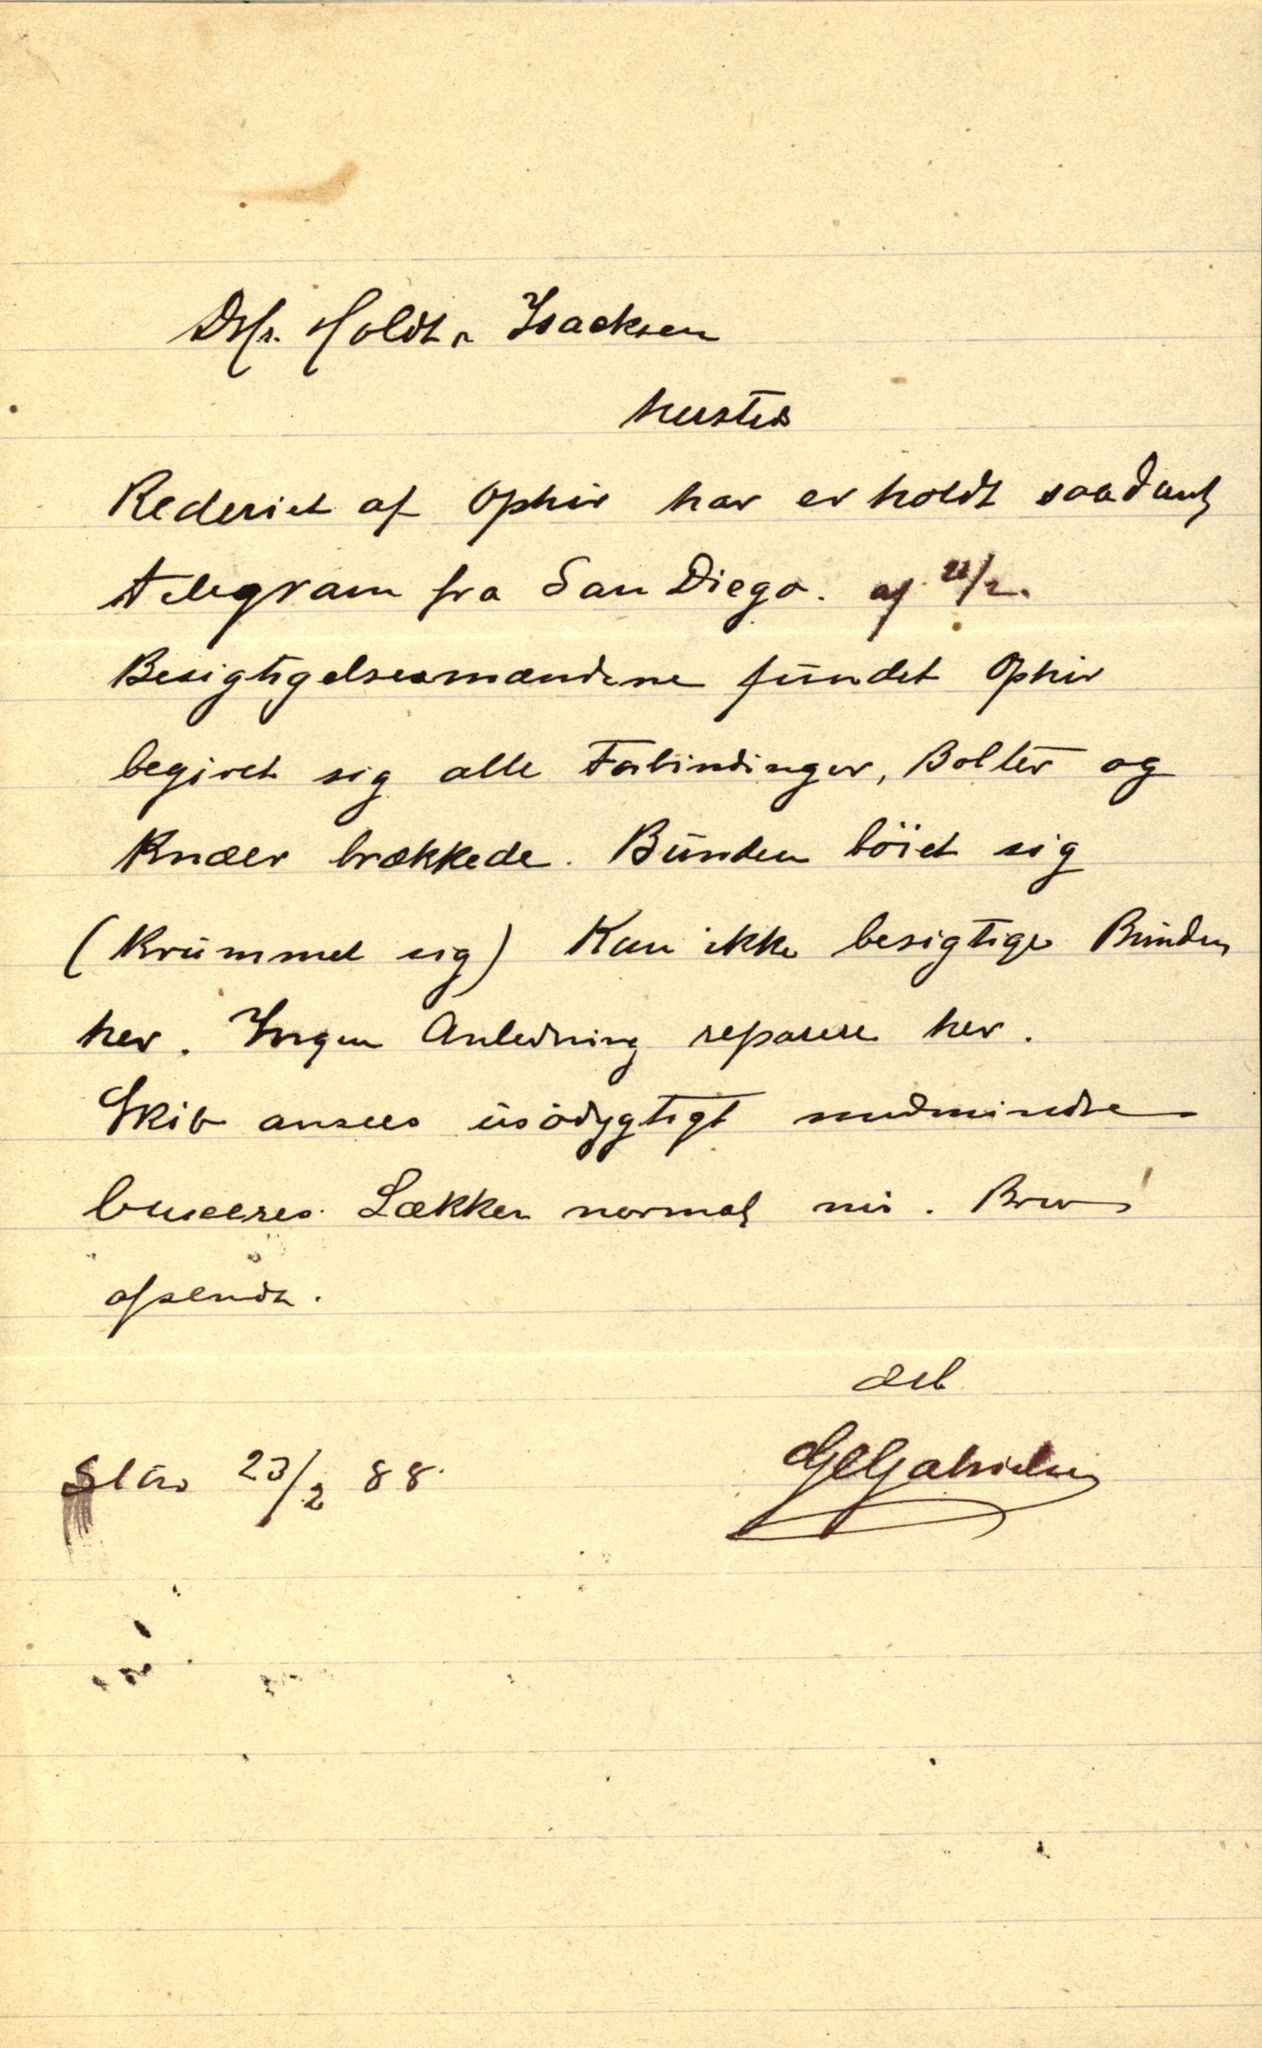 DHr. Holdt & Isacksen
hersteds
Rederiet af Ophir har erholdt saadant
telegram fra San Diego. af 22/2.
Besigtigelsesmændene fundet Ophir
begivet sig alle Forbindinger, Bolter og
Knæer brækkede. Bunden böiet sig
(Krummet sig) Kan ikke besigtige Bunden
her. Ingen Anledning reparere her.
Skib ansees usödygtigt medmindre
bugseres. Lækken normal nu. Brev
afsendt.
Erb
Slav 23/2 88.
Gabrielsen